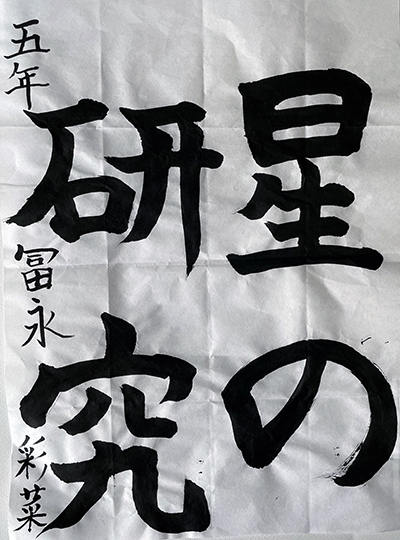 星の
研究
五年 冨永 彩菜